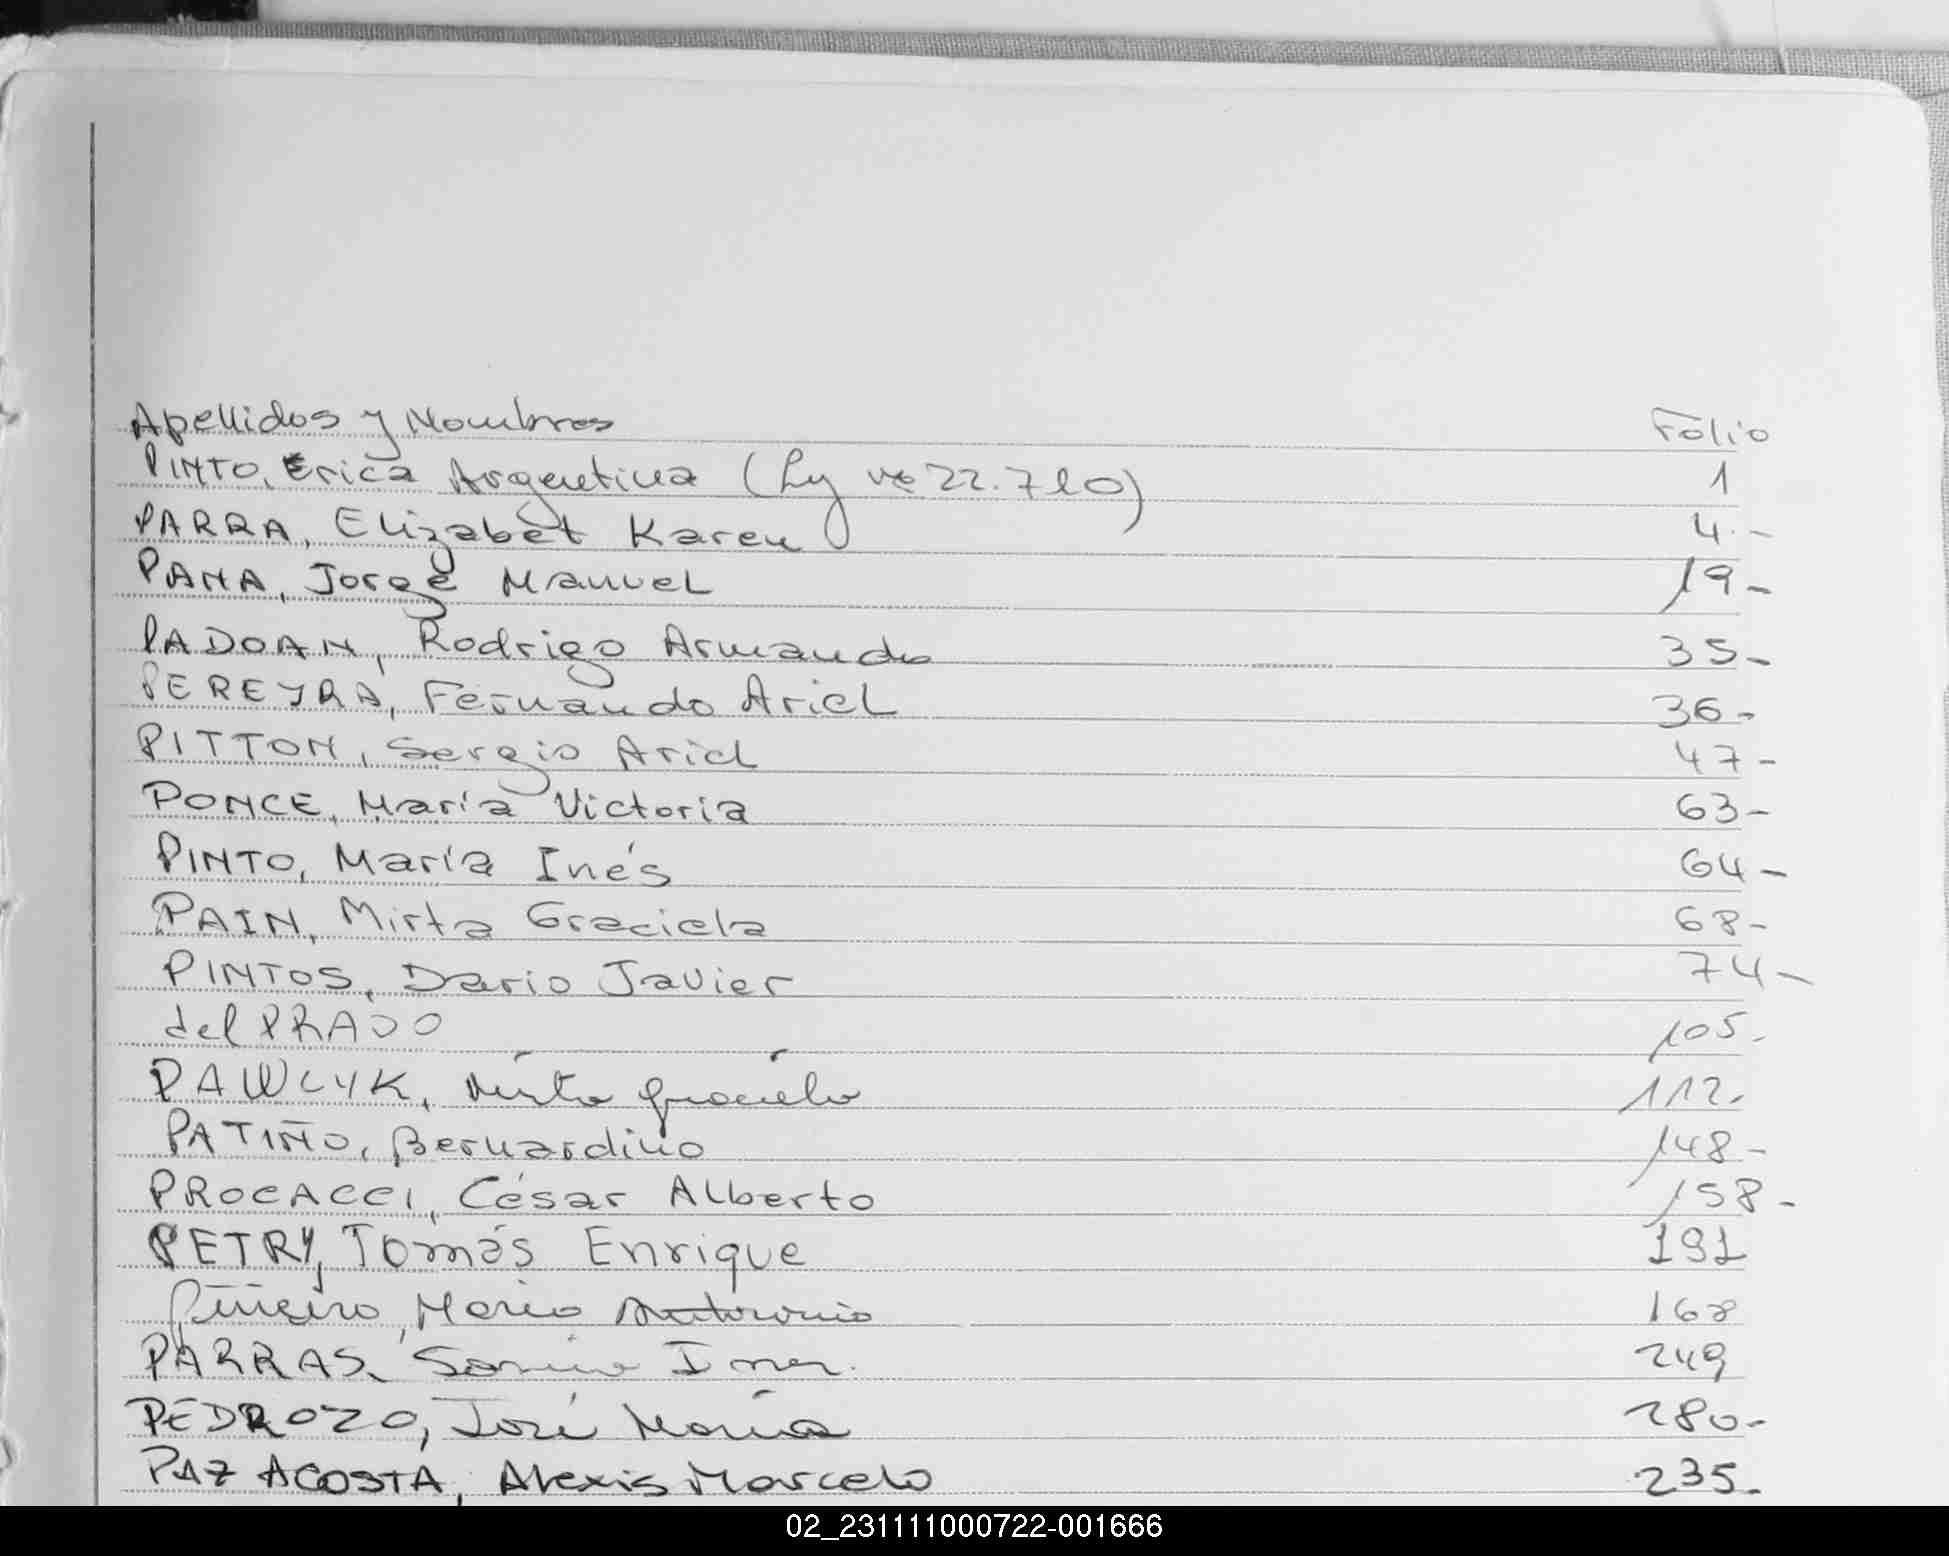 Apellidos y Nombres Folio
PINTO, Erica Argentina (Ley nº 22.710) 1
PARRA, Elizabet Karen 4.-
PANA, Jorge Manuel 19-
PADOAN, Rodrigo Armando 35-
PEREYRA, Fernando Ariel 36-
PITTON, Sergio Ariel 47-
PONCE, María Victoria 63-
PINTO, María Inés 64-
PAIN, Mirta Graciela 68-
PINTOS, Dario Javier 74-
del PRADO 105-
PAWLYK, Mirta Graciela 112-
PATIÑO, Bernardino 148-
PROCACCI, César Alberto 158-
PETRY, Tomás Enrique 191
Piñeiro, Mario Antonio 168
PARRAS, 249
PEDROZO, José María 280-
PAZ ACOSTA, Alexis Marcelo 235-
02_231111000722-001666